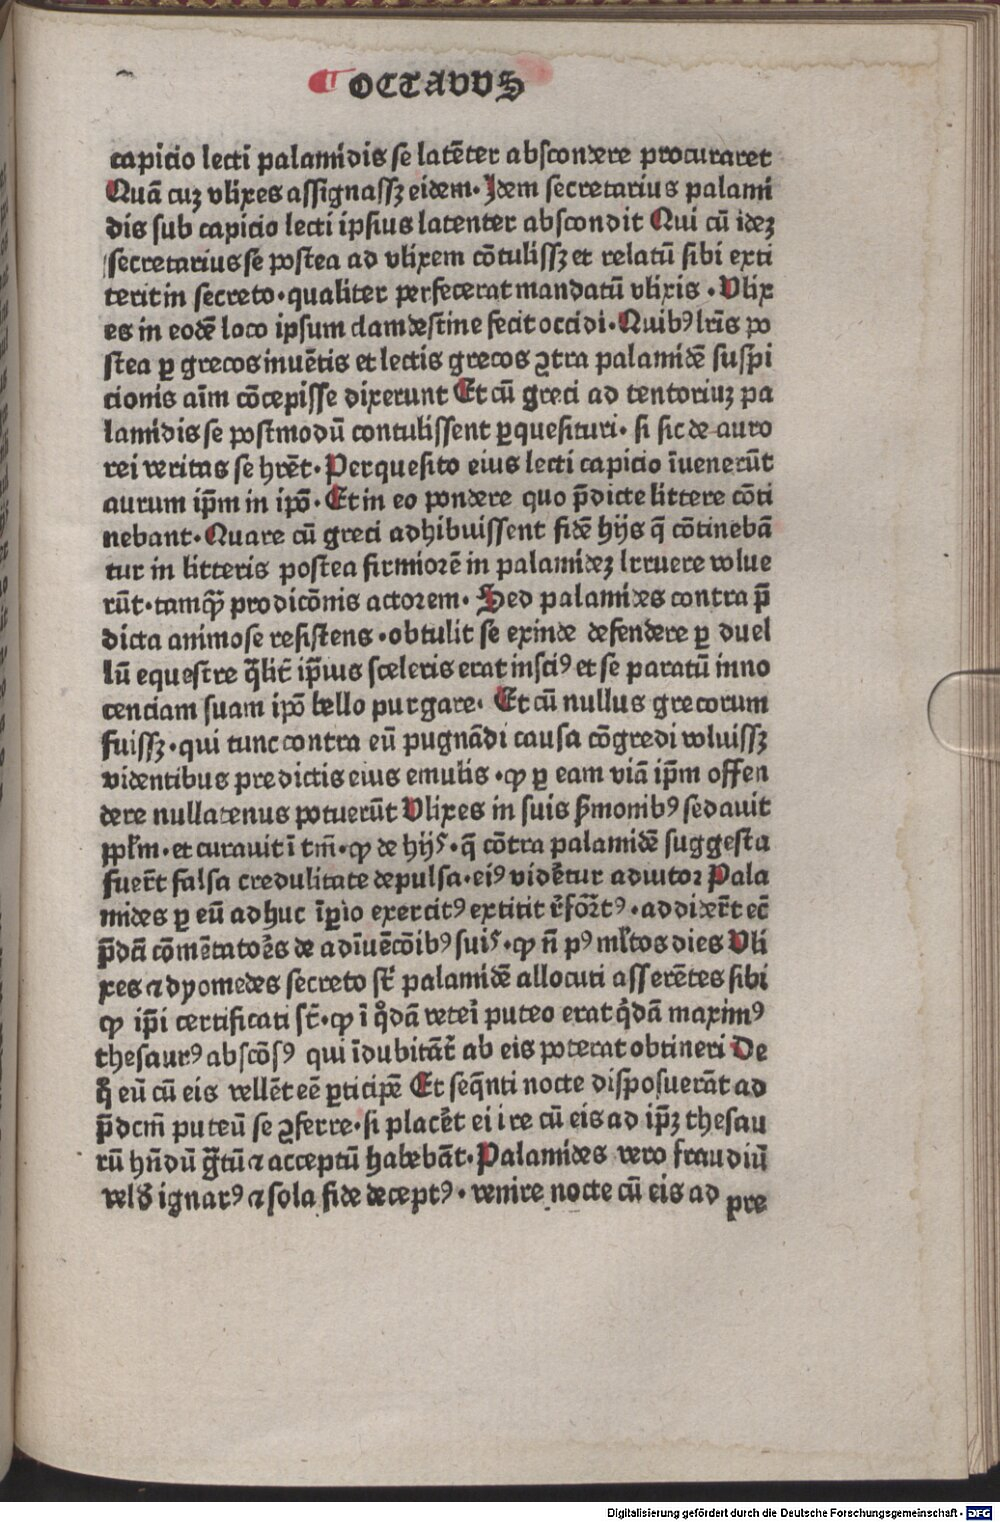 ¶ OCTAVVS
capicio lecti palamidis se latēter abscondere procuraret
Quā cuꝫ vlixes assignassꝫ eidem. Idem secretarius palami
dis sub capicio lecti ipsius latenter abscondit Qui cū ideꝫ
secretarius se postea ad vlixem cōtulissꝫ et relatū sibi exti
terit in secreto. qualiter perfecerat mandatū vlixis. Vlix
es in eodē loco ipsum clamdestine fecit occidi. Quibꝰ lrīs po
stea ꝑ grecos inuētis et lectis grecos ꝯtra palamidē suspi
cionis aīm cōcepisse dixerunt Et cū greci ad tentoriuꝫ pa
lamidis se postmodū contulissent ꝑquesituri. si sic de auro
rei veritas se hrēt. Perquesito eius lecti capicio īuenerūt
aurum ip̄m in ipō. Et in eo pondere quo p̄dicte littere cōti
nebant. Quare cū greci adhibuissent fidē hijs q̄ cōtinebā
tur in litteris postea firmiorē in palamideꝫ Irruere volue
rūt. tamqꝫ prodicōnis actorem. Sed palamides contra p̄
dicta animose resistens. obtulit se exinde defendere ꝑ duel
lū equestre q̄lit̄ ip̄ius sceleris erat insciꝰ et se paratū inno
cenciam suam ipō bello purgare. Et cū nullus grecorum
fuissꝫ. qui tunc contra eū pugnādi causa cōgredi voluissꝫ
videntibus predictis eius emulis. ꝙ ꝑ eam viā ip̄m offen
dere nullatenus potuerūt Vlixes in suis s̄monibꝰ sedauit
ppl̄m. et curauit ī tm̄. ꝙ de hijs. q̄ cōtra palamidē suggesta
fuer̄t falsa credulitate depulsa. eiꝰ vidētur adiutor Pala
mides ꝑ eū adhuc īꝑio exercitꝰ extitit r̄fōrtꝰ. addider̄t ec̄
p̄dcī cōmētatores de adīuēcōibꝰ suis. ꝙ n̄ pꝰ ml̄tos dies Vli
xes ⁊ dyomedes secreto st̄ palamidē allocuti asserētes sibi
ꝙ ip̄i certificati st̄. ꝙ ī q̊dā veteri puteo erat q̇dā maximꝰ
thesaurꝰ abscōsꝰ qui īdubitāt̄ ab eis poterat obtineri De
q̊ eū cū eis vellēt eē ꝑticipē Et seq̄nti nocte disposuerāt ad
p̄dcm̄ puteū se ꝯferre. si placēt ei ire cū eis ad ip̄ꝫ thesau
rū hn̄dū g̃tū ⁊ acceptū habebāt. Palamides vero fraudiū
vels̄ ignarꝰ ⁊ sola fide deceptꝰ. venire nocte cū eis ad pre
Digitalisierung gefördert durch die Deutsche Forschungsgemeinschaft - DFG